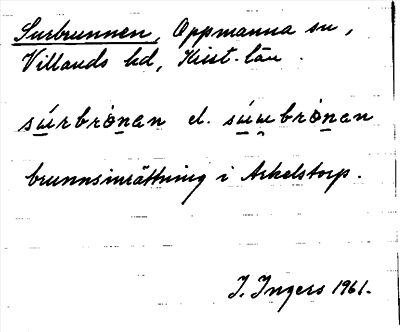 Surbrunnen, Oppmanna sn,
Villands hd, Krist. län.
sú̱rbrò̱nan el. sú̱u̯brò̱nan
brunnsinrättning i Arkelstorp.
I. Ingers 1961.